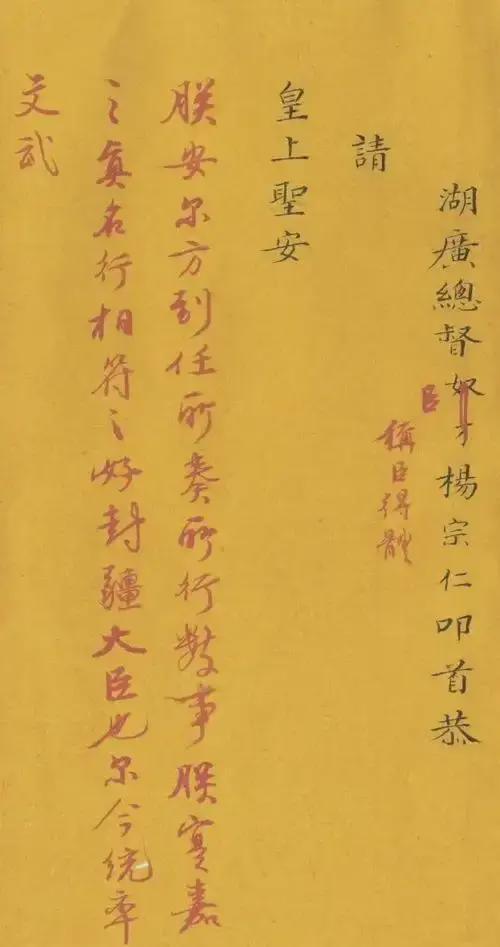 湖廣總督奴才楊宗仁叩首恭
臣
稱臣得體
請
皇上聖安
朕安尔方到任所奏所行数事朕寔嘉
之真名行相符之好封疆大臣也尔今统率
文武